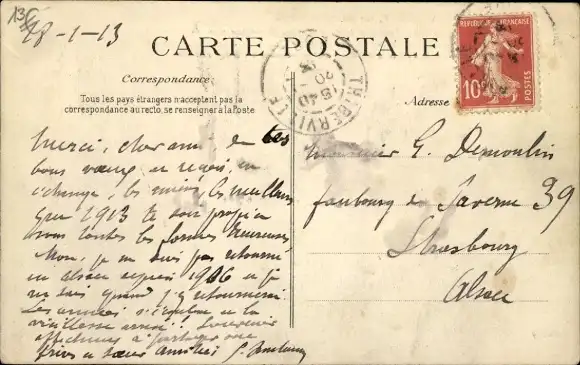 28-1-13
CARTE POSTALE
RÉPUBLIQUE FRANÇAISE
10
POSTES
Correspondance:
Tous les pays étrangers n'acceptent pas la
correspondance au recto, se renseigner à la Poste
Adresse
THIBERVILLE
Merci, cher ami de tes
bons vœux et reçois en
échange, les miens les meilleurs
que 1913 te soit propice
sous toutes les formes heureuses
Non, je ne suis pas retourné
en Alsace depuis 1906 et je
ne sais quand j'y retournerai.
Les années s'écoulent et la
vieillesse arrive. Souvenirs
affectueux à partager avec
frères et sœurs Amitiés
Monsieur G. Demoulin
faubourg de Saverne 39
Strasbourg
Alsace